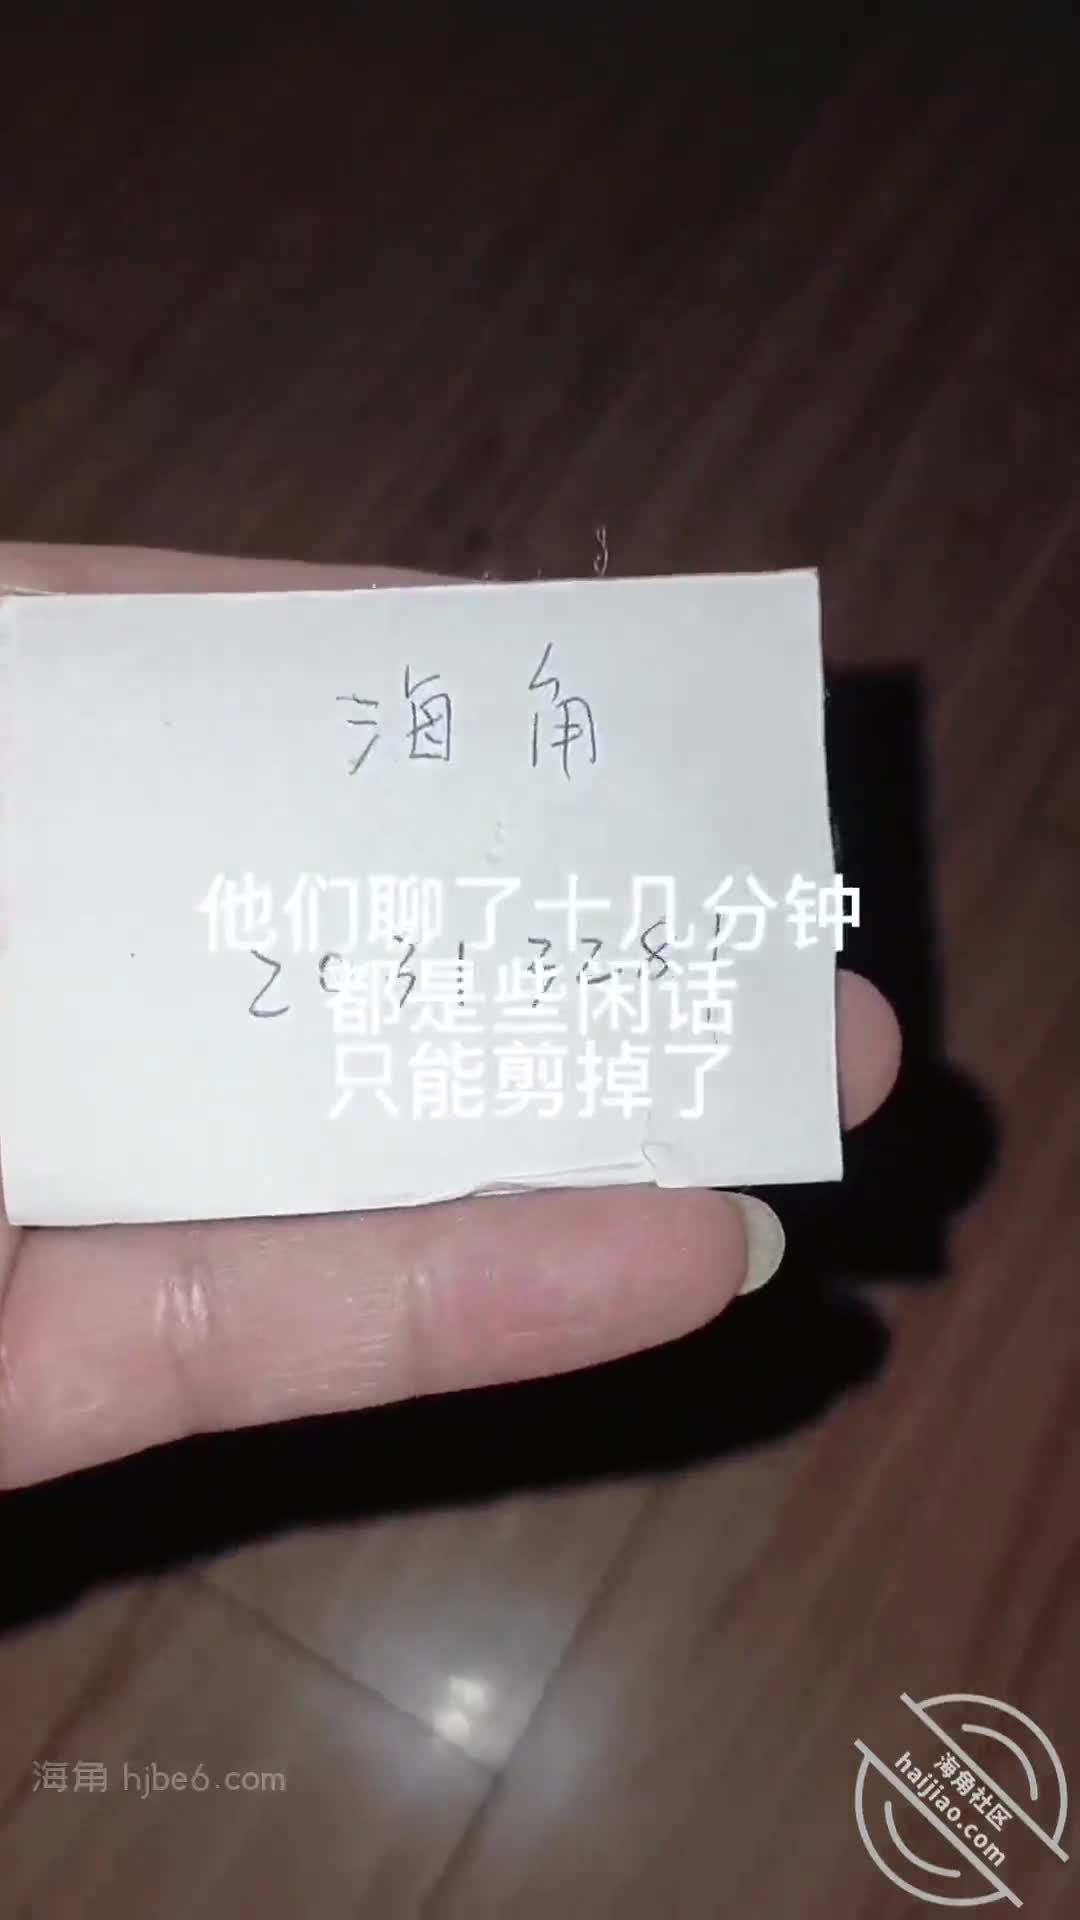 海角
20313281
他们聊了十几分钟
都是些闲话
只能剪掉了
海角 hjbe6.com
海角社区
haijiao.com